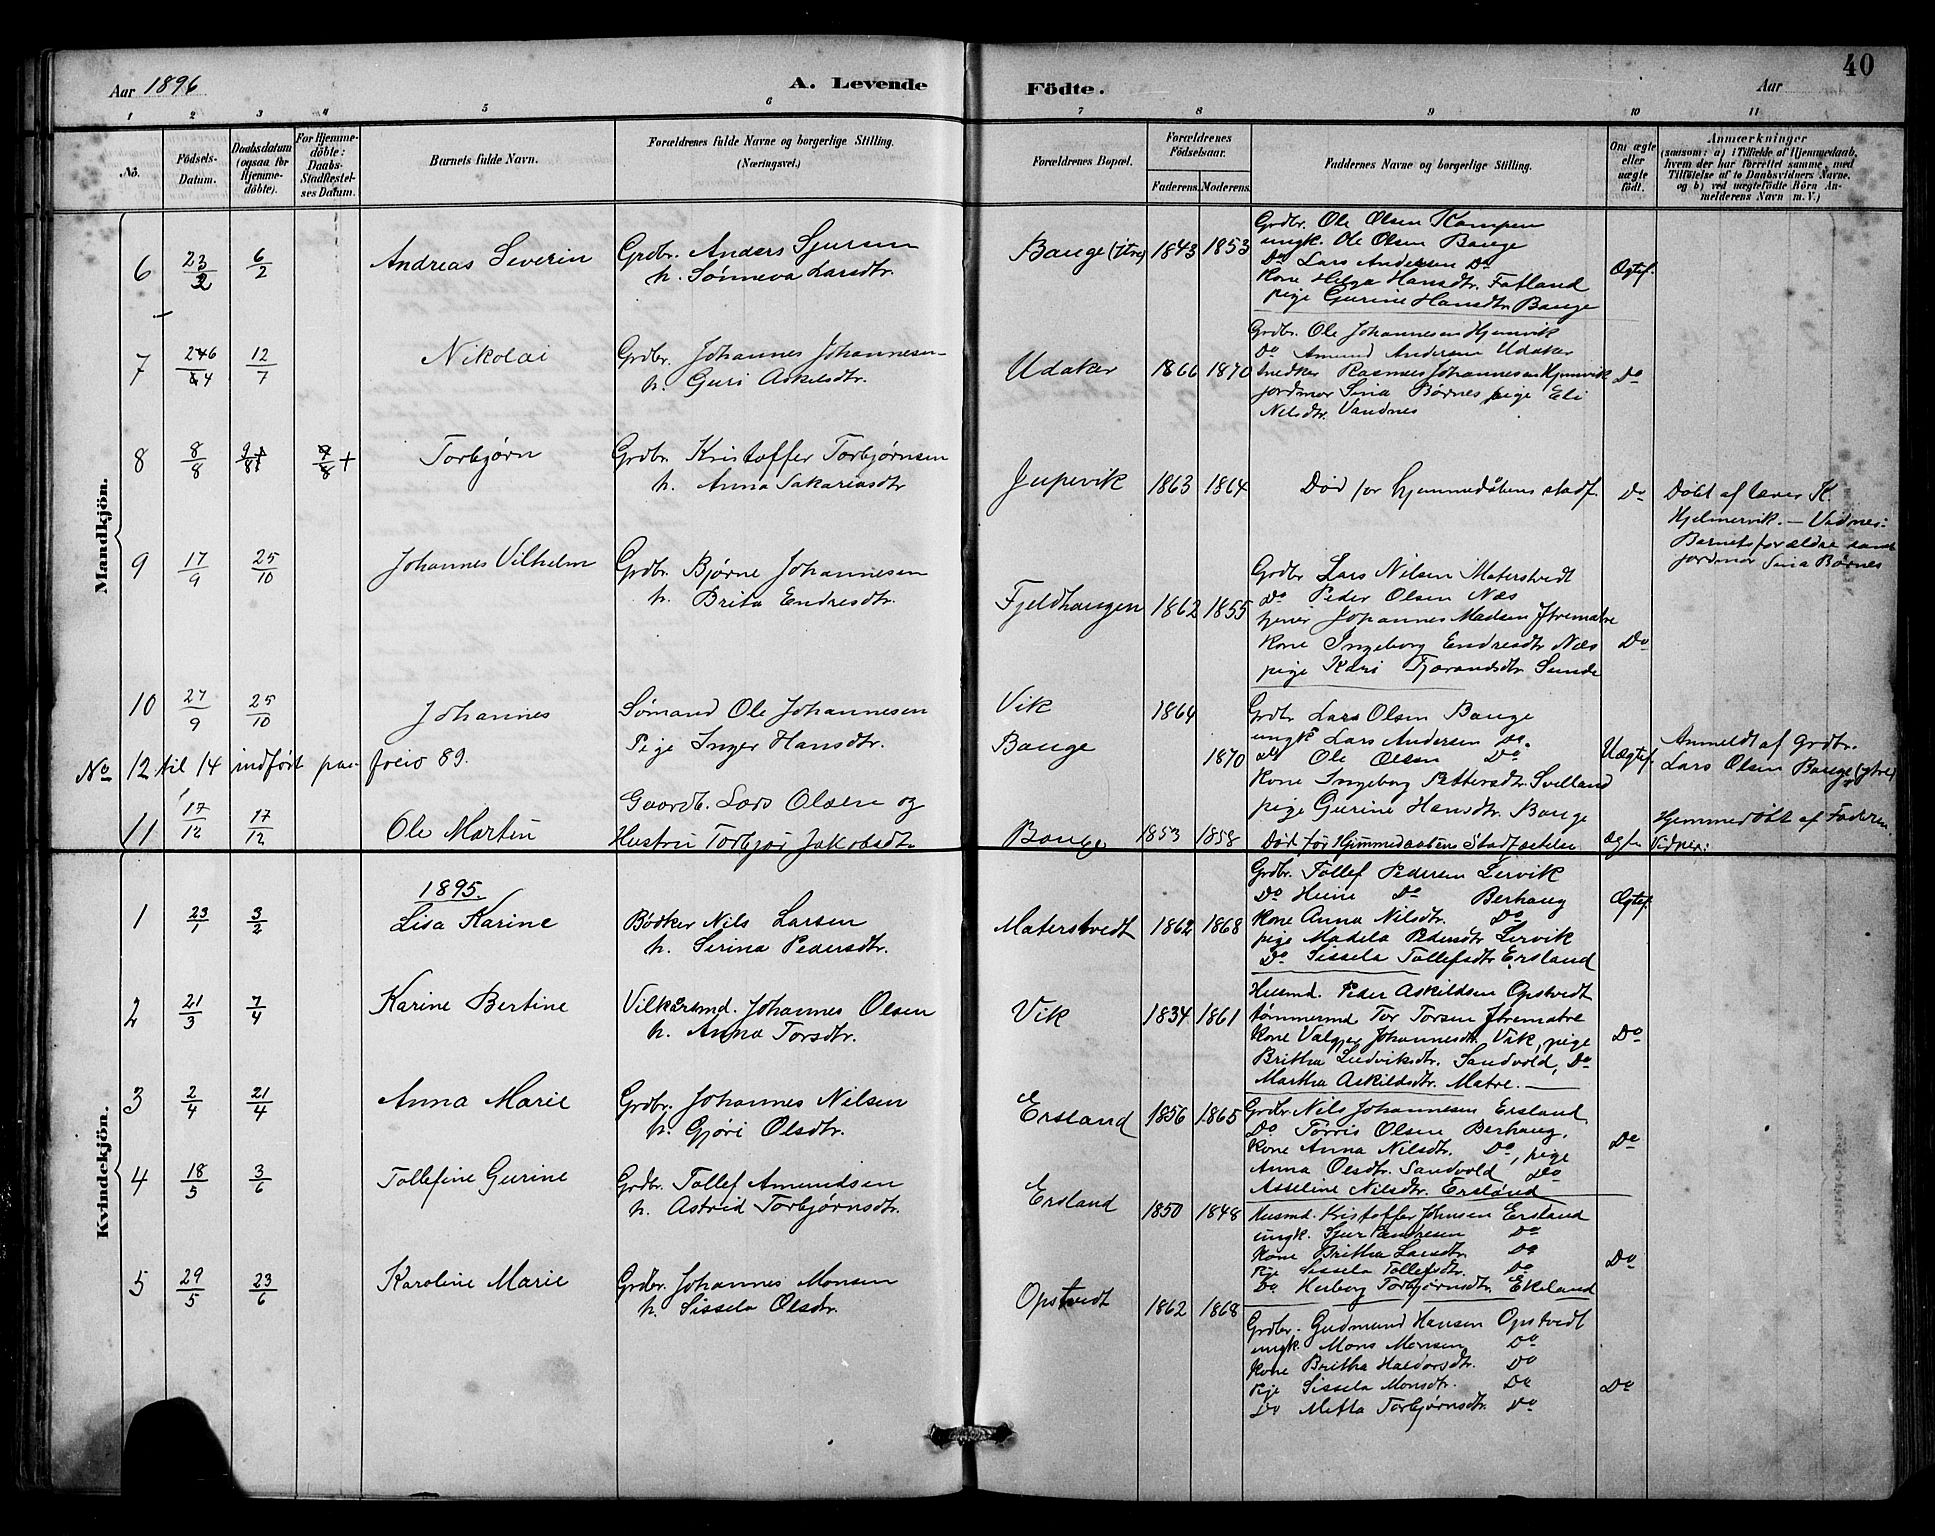 40
Aar 1896 A. Levende Födte. Aar
1 2 3 4 5 6 7 8 9 10 11
No. Födsels-Datum. Daabsdatum (ogsaa for Hjemmedöbte). For Hjemmedöbte: Daabs-Stadfestelses Datum. Barnets fulde Navn. Forældrenes fulde Navne og borgerlige Stilling. (Næringsvei.) Forældrenes Bopæl. Forældrenes Födselsaar. Faderens. Moderens. Faddernes Navne og borgerlige Stilling. Om ægte eller uægte födt. Anmærkninger (saasom: a) i Tilfælde af Hjemmedaab, hvem der har forrettet samme, med Tilföielse af to Daabsvidners Navne, og b) ved uægtefödte Börn Anmelderens Navn m. V.)
Mandkjön.
6 23/2 6/2 Andreas Severin Grdbr. Anders Sjursen
h. Sønneva Larsdtr.
Bauge (itre) 1843 1853
Grdbr. Ole Olsen Kampen
ungk. Ole Olsen Bauge
Do Lars Andersen Do
Kone Helga Hansdtr. Fatland
pige Gurine Hansdtr. Bauge
Ægtef.
7 12/7 Nikolai Grdbr. Johannes Johannesen
h. Guri Askelsdtr.
Udaker 1866 1870
Grdbr. Ole Johannesen Hjemvik
Do Amund Andersen Udaker
snedker Rasmus Johannesen Hjemvik
jordmor Sina Børnes pige Eli
Nilsdtr. Vandnes
Do
8 8/8 Torbjørn Grdbr. Kristoffer Torbjørnsen
h. Anna Sakariasdtr
Jupevik 1863 1864 Død for hjemmedåbens stadf. Do
Døbt af lærer K.
Hjelmervik. — Vidner:
Barnets forældre samt
jordmor Sina Børnes
9 17/9 25/10 Johannes Vilhelm Grdbr. Bjørne Johannesen
h. Brita Endresdtr.
Fjeldhaugen 1862 1855
Grdbr Lars Nilsen Matersvedt
Do Peder Olsen Næs
tjener Johannes Madsen Ytrematre
Kone Ingeborg Endresdtr Næs
pige Kari Tjorandsdtr. Sunde
Do
10 27/9 25/10 Johannes Sømand Ole Johannesen
Pige Inger Hansdtr.
Vik 1864
Bauge 1870
Grdbr Lars Olsen Bauge
ungk Lars Andersen Do.
Do Ole Olsen Do
Kone Ingeborg Pettersdtr. Svelland
pige Gurine Hansdtr. Bauge
Uægtef.
Anmeldt af Grdbr.
Lars Olsen Bauge (ytre)
No 12 til 14 indført paa folio 89.
11 17/12 17/12 Ole Martin Gaardb. Lars Olsen og
Hustru Torbjør Jakobsdt.
Bauge 1853 1858 Død før Hjemmedaabens Stadfæstelse ægte
Hjemmedøbt af Faderen.
Vidner:
Kvindekjön.
1895.
1 23/1 3/2 Lisa Karine Bødker Nils Larsen
h. Serina Pedersdtr.
Matersvedt 1862 1868
Grdbr. Tollef Pedersen Lervik
Do Heine Do Berhaug
Kone Anna Nilsdtr. Do
pige Madela Pedersdtr Lervik
Do Sissela Tollefsdtr. Ersland
Ægtef.
2 21/3 7/4 Karine Bertine Vilkårsmd. Johannes Olsen
h. Anna Torsdtr.
Vik 1834 1861
Husmd. Peder Askildsen Opstvedt
tømmermd Tor Torsen Ytrematre
Kone Valgjer Johannesdtr. Vik, pige
Britha Ludviksdtr. Sandvold, Do
Martha Askildsdtr. Matre. —
Do
3 2/4 21/4 Anna Marie Grdbr. Johannes Nilsen
h. Gjøri Olsdtr.
Ersland 1856 1865
Grdbr. Nils Johannesen Ersland
Do Torris Olsen Berhaug,
Kone Anna Nilsdtr. Do, pige
Anna Olsdtr. Sandvold Do
Asseline Nilsdtr. Ersland
Do
4 18/5 3/6 Tollefine Gurine Grdbr. Tollef Amundsen
h. Astrid Torbjørnsdtr.
Ersland 1850 1848
Husmd. Kristoffer Johnsen Ersland
ungk. Sjur Endresen Do
Kone Britha Larsdtr. Do
Pige Sissela Tollefsdtr. Do
Do Herborg Torbjørnsdtr. Ekeland
Do
5 29/5 23/6 Karoline Marie Grdbr. Johannes Monsen
h. Sissela Olsdtr.
Opstvedt 1862 1868
Grdbr. Gudmund Hansen Opstvedt
ungk. Mons Monsen Do
Kone Britha Haldorsdtr. Do
Pige Sissela Monsdtr. Do
Do Metta Torbjørnsdtr. Do
Do